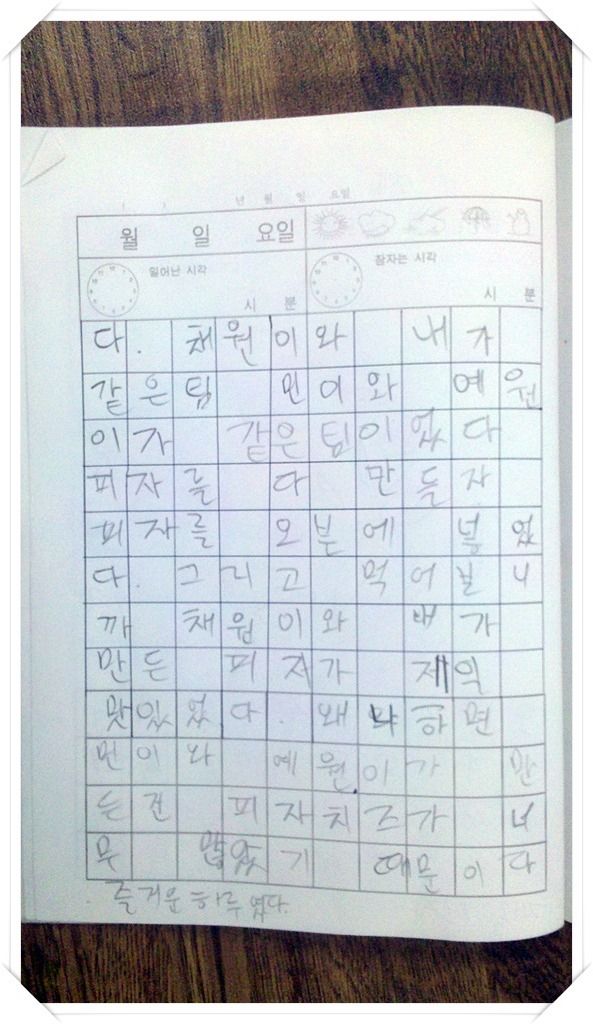 년 월 일 요일
월 일 요일
일어난 시각 잠자는 시각
시 분 시 분
다. 채원이와 내가
같은팀 민이와 예원
이가 같은팀이었다
피자를 다 만들자
피자를 오븐에 넣었
다. 그리고 먹어보니
까 채원이와 내가
만든 피자가 제일
맛있었다. 왜냐하면
민이와 예원이가 만
든건 피자치즈가 너
무 많았기 때문이다
즐거운 하루였다.